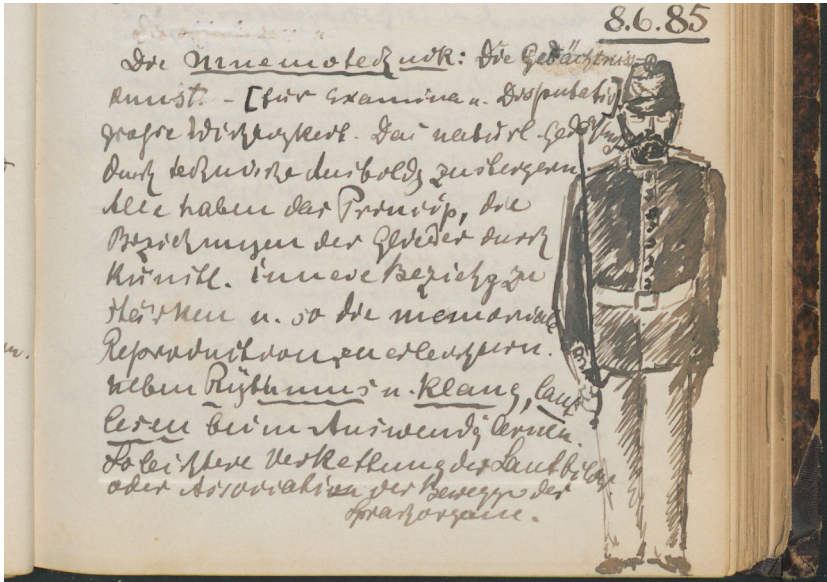 8.6.85
Die Mnemotechnik: Die Gedächtnis-
kunst. - [für Examina u. Disputatio]
große Wichtigkeit. Das natürl. Ged
durch technische Ausbildg zu steigern.
Alle haben das Princip, die
Beziehungen der Glieder durch
künstl. innere Beziehg zu
stärken u. so die memoriale
Reproduktion zu erleichtern.
neben Rhythmus u. Klang, laut
lesen beim Auswendig lernen.
So leichtere Verkettung der Lautbilder
oder Association der Beweggn der
Sprachorgane.